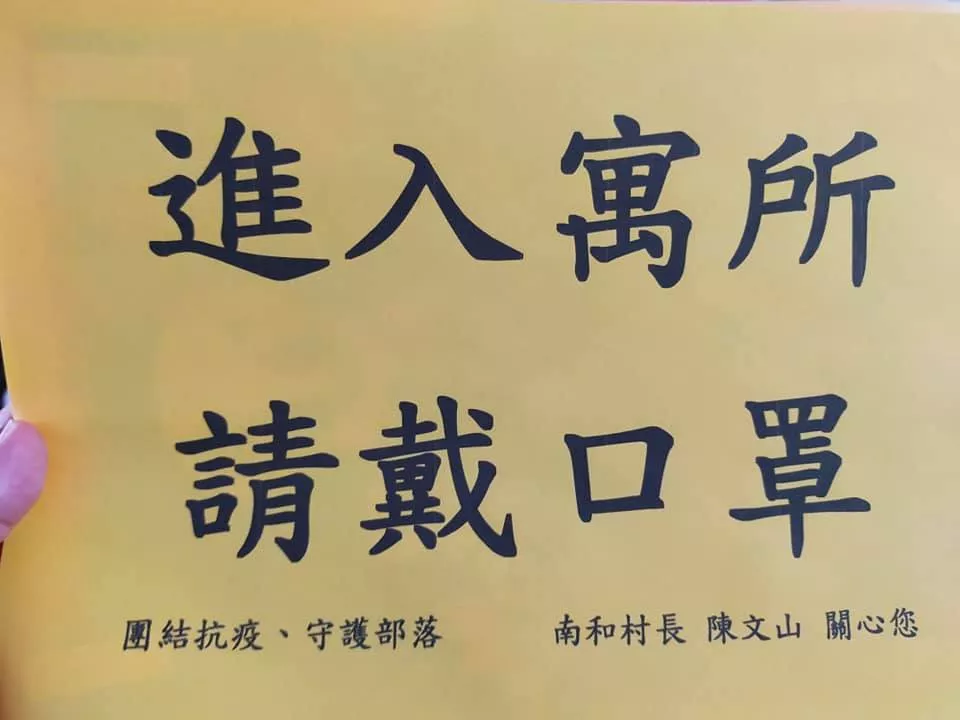 進入寓所
請戴口罩
團結抗疫、守護部落 南和村長 陳文山 關心您